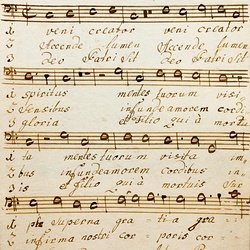 1 veni creator veni creator
2 Accende lumen Accende lumen
3 Deo Patri sit Deo Patri sit
1 spiritus mentes tuorum visi
2 Sensibus infunde amorem cordi
3 gloria et Filio qui à mortu
1 ta mentes tuorum visita im
2 bus infunde amorem cordibus in
3 is et Filio qui à mortuis Sur
1 ple Superna gratia gra
2 infirma nostri corporis cor